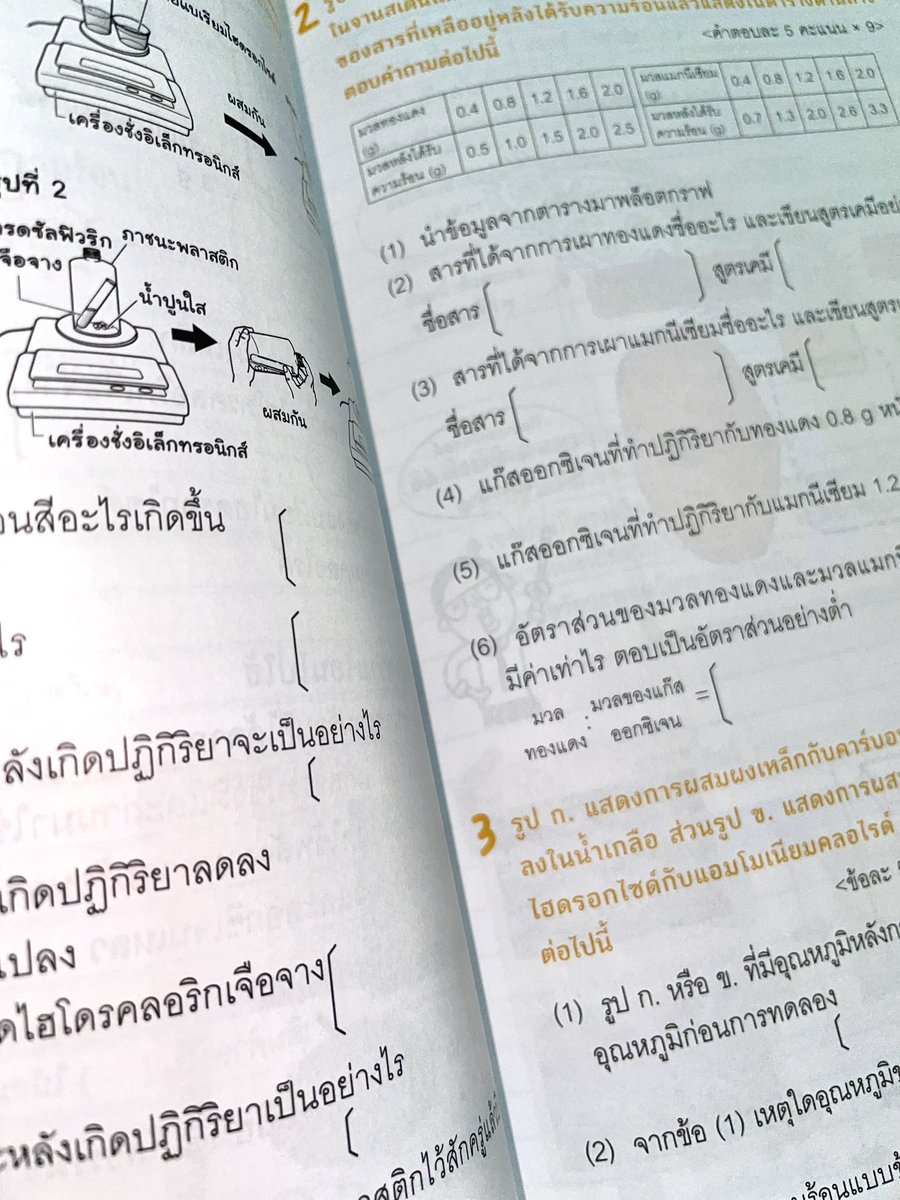 เครื่องชั่งอิเล็กทรอนิกส์
ผสมกัน
รูปที่ 2
กรดซัลฟิวริก
เจือจาง
ภาชนะพลาสติก
น้ำปูนใส
ผสมกัน
เครื่องชั่งอิเล็กทรอนิกส์
อะไรเกิดขึ้น
ไร
ลังเกิดปฏิกิริยาจะเป็นอย่างไร
เกิดปฏิกิริยาลดลง
แปลง
ไฮโดรคลอริกเจือจาง
หลังเกิดปฏิกิริยาเป็นอย่างไร
2
ของสารที่เหลืออยู่หลังได้รับความร้อนแล้วแสดงในตารางด้านล่าง
ตอบคำถามต่อไปนี้
<คำตอบละ 5 คะแนน × 9>
มวลทองแดง (g) 0.4 0.8 1.2 1.6 2.0
มวลหลังได้รับความร้อน (g) 0.5 1.0 1.5 2.0 2.5
มวลแมกนีเซียม (g) 0.4 0.8 1.2 1.6 2.0
มวลหลังได้รับความร้อน (g) 0.7 1.3 2.0 2.6 3.3
(1) นำข้อมูลจากตารางมาพล็อตกราฟ
(2) สารที่ได้จากการเผาทองแดงชื่ออะไร และเขียนสูตรเคมี
ชื่อสาร ( ) สูตรเคมี (
(3) สารที่ได้จากการเผาแมกนีเซียมชื่ออะไร และเขียนสูตร
ชื่อสาร ( ) สูตรเคมี (
(4) แก๊สออกซิเจนที่ทำปฏิกิริยากับทองแดง 0.8 g
(5) แก๊สออกซิเจนที่ทำปฏิกิริยากับแมกนีเซียม 1.2
(6) อัตราส่วนของมวลทองแดงและมวล
มีค่าเท่าไร ตอบเป็นอัตราส่วนอย่างต่ำ
มวลทองแดง : มวลของแก๊สออกซิเจน = (
3 รูป ก. แสดงการผสมผงเหล็กกับ
ลงในน้ำเกลือ ส่วนรูป ข. แสดงการ
ไฮดรอกไซด์กับแอมโมเนียมคลอไรด์
ต่อไปนี้
<ข้อละ
(1) รูป ก. หรือ ข. ที่มีอุณหภูมิ
อุณหภูมิก่อนการทดลอง
(
(2) จากข้อ (1) เหตุใดอุณหภูมิ